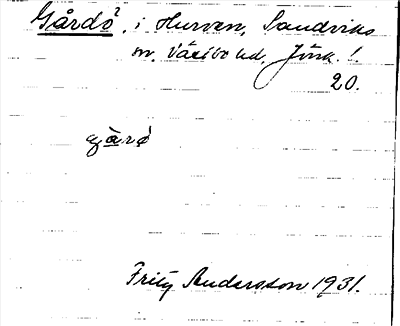 Gårdö², i Hurven, Sandviks
sn. Västbo hd, Jönk. l.
20.
gårö
Fritz Andersson 1931.